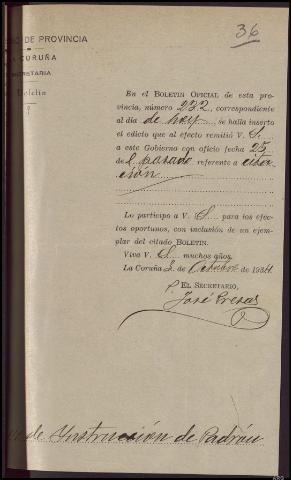 36
NO DE PROVINCIA
CORUÑA
SECRETARIA
Boletín
En el BOLETIN OFICIAL de esta pro-
vincia, número 232, correspondiente
al día de hoy se halla inserto
el edicto que al efecto remitió V. S.
a este Gobierno con oficio fecha 25
del pasado referente a
Lo participo a V. S. para los efec-
tos oportunos, con inclusión de un ejem-
plar del citado BOLETIN.
Viva V. S. muchos años.
La Coruña 3 de Octubre de 1934
EL SECRETARIO,
José Presas
de Instrucción de Padrón